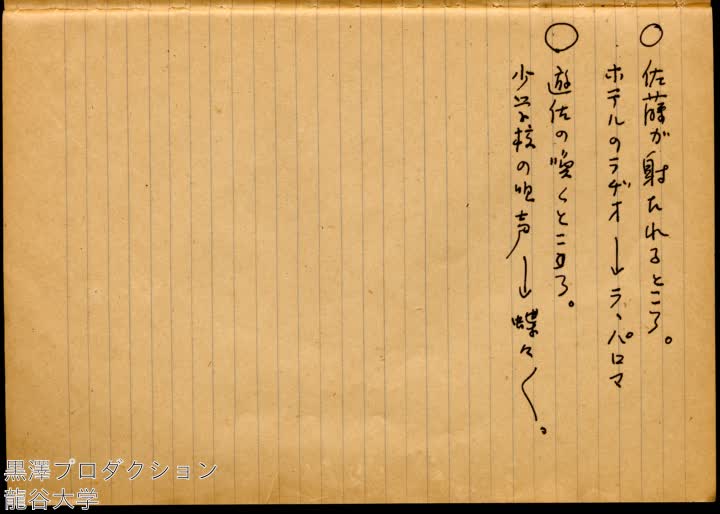 ○ 佐藤が射たれるところ。
ホテルのラヂオ→ラ、パロマ
○ 遊佐の喚くところ。
少学校の唱声→蝶々〱。
黒澤プロダクション
龍谷大学